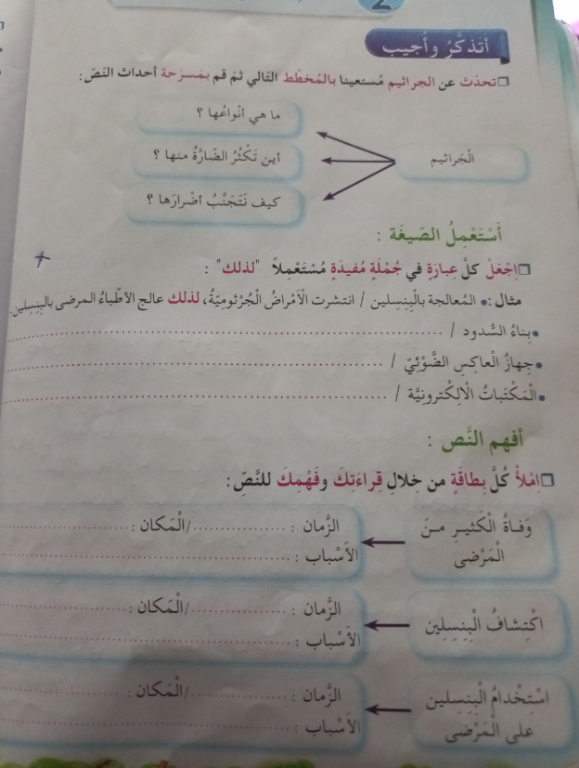 2
أَتَذَكَّرُ وأُجيب
❑تحدّث عن الجراثيم مُستعينا بالمُخطّط التّالي ثمّ قم بمَسرَحة أحداث النّصّ:
ما هي أنْواعُها ؟
الْجَراثيم
أين تَكْثُرُ الضّارَّةُ منها ؟
كيف نَتَجَنَّبُ أضْرارَها ؟
أَسْتَعْمِلُ الصّيغَة :
❑اِجْعَلْ كلَّ عِبارَةٍ في جُمْلَةٍ مُفيدَةٍ مُسْتَعْمِلاً "لذلك" :
مثال :• المُعالجة بالْبِنِسِلين / انتشرت الْأَمْراضُ الْجُرْثوميّةُ، لذلك عالج الأطْباءُ المرضى بالبِنِسِلين.
•بناءُ السُّدود / ........................................
•جهازُ الْعاكِسِ الضَّوْئِيّ / ........................................
•الْمَكْتَباتُ الْالِكْترونيَّة / ........................................
أفهم النَّص :
❑اِمْلأْ كُلَّ بِطاقَةٍ من خِلالِ قِراءَتِكَ وفَهْمِكَ للنَّصِّ:
وَفاةُ الْكَثيـرِ مـنَ الْمَرْضى
الزَّمان : ................/الْمَكان : ................
الأَسْباب : ................................
اكْتِشافُ الْبِنِسِلين
الزَّمان : ................/الْمَكان : ................
الأَسْباب : ................................
اسْتِخْدامُ الْبِنِسِلين على الْمَرْضى
الزَّمان : ................/الْمَكان : ................
الأَسْباب : ................................